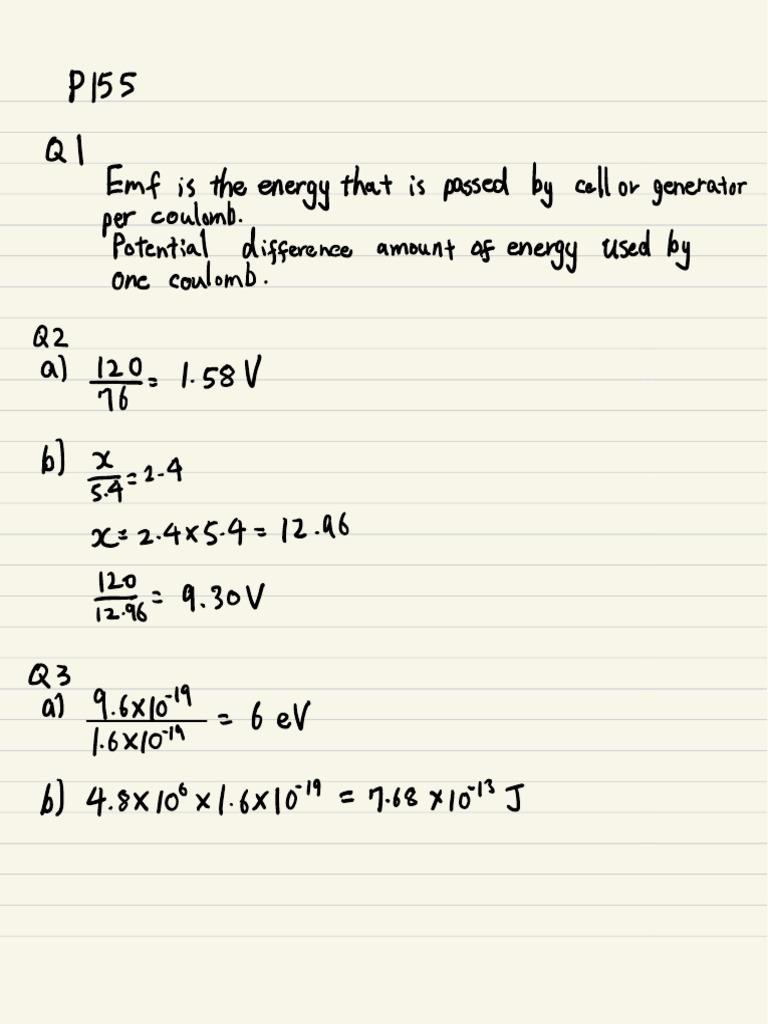 P155
Q1
Emf is the energy that is passed by cell or generator
per coulomb.
Potential difference amount of energy used by
one coulomb.
Q2
a) 120/76 = 1.58 V
b) x/5.4 = 2.4
x = 2.4 × 5.4 = 12.96
120/12.96 = 9.30 V
Q3
a) 9.6×10⁻¹⁹/1.6×10⁻¹⁹ = 6 eV
b) 4.8×10⁶ × 1.6×10⁻¹⁹ = 7.68 ×10⁻¹³ J